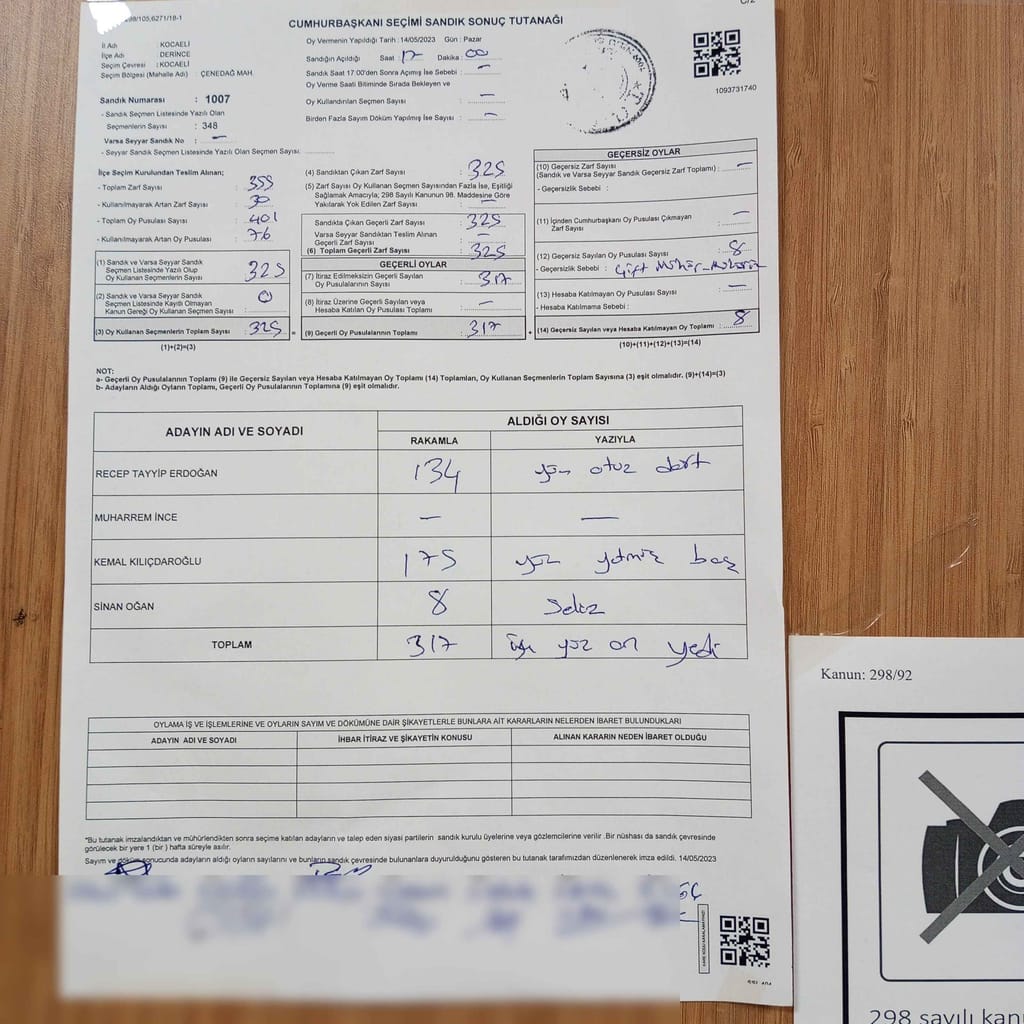 298/105,6271/18-1
CUMHURBAŞKANI SEÇİMİ SANDIK SONUÇ TUTANAĞI
İl Adı : KOCAELİ
İlçe Adı : DERİNCE
Seçim Çevresi : KOCAELİ
Seçim Bölgesi (Mahalle Adı) ÇENEDAĞ MAH.
Sandık Numarası : 1007
- Sandık Seçmen Listesinde Yazılı Olan
Seçmenlerin Sayısı : 348
Varsa Seyyar Sandık No : –
- Seyyar Sandık Seçmen Listesinde Yazılı Olan Seçmen Sayısı:
Oy Vermenin Yapıldığı Tarih : 14/05/2023 Gün : Pazar
Sandığın Açıldığı Saat 17 Dakika : 00
Sandık Saat 17:00'den Sonra Açımış İse Sebebi : –
Oy Verme Saati Bitiminde Sırada Bekleyen ve
Oy Kullandırılan Seçmen Sayısı : –
Birden Fazla Sayım Döküm Yapılmış İse Sayısı : –
1093731740
İlçe Seçim Kurulundan Teslim Alınan;
- Toplam Zarf Sayısı : 355
- Kullanılmayarak Artan Zarf Sayısı : 30
- Toplam Oy Pusulası Sayısı : 401
- Kullanılmayarak Artan Oy Pusulası : 76
(1) Sandık ve Varsa Seyyar Sandık
Seçmen Listesinde Yazılı Olup
Oy Kullanan Seçmenlerin Sayısı : 325
(2) Sandık ve Varsa Seyyar Sandık
Seçmen Listesinde Kayıtlı Olmayan
Kanun Gereği Oy Kullanan Seçmen Sayısı : 0
(3) Oy Kullanan Seçmenlerin Toplam Sayısı : 325 =
(1)+(2)=(3)
(4) Sandıktan Çıkan Zarf Sayısı : 325
(5) Zarf Sayısı Oy Kullanan Seçmen Sayısından Fazla İse, Eşitliği
Sağlamak Amacıyla; 298 Sayılı Kanunun 98. Maddesine Göre
Yakılarak Yok Edilen Zarf Sayısı : –
Sandıkta Çıkan Geçerli Zarf Sayısı : 325
Varsa Seyyar Sandıktan Teslim Alınan
Geçerli Zarf Sayısı : –
(6) Toplam Geçerli Zarf Sayısı : 325
GEÇERLİ OYLAR
(7) İtiraz Edilmeksizin Geçerli Sayılan
Oy Pusulası Sayısı : 317
(8) İtiraz Üzerine Geçerli Sayılan veya
Hesaba Katılan Oy Pusulası Toplamı : –
(9) Geçerli Oy Pusulalarının Toplamı : 317 +
GEÇERSİZ OYLAR
(10) Geçersiz Zarf Sayısı
(Sandık ve Varsa Seyyar Sandık Geçersiz Zarf Toplamı) : –
- Geçersizlik Sebebi :
(11) İçinden Cumhurbaşkanı Oy Pusulası Çıkmayan
Zarf Sayısı : –
(12) Geçersiz Sayılan Oy Pusulası Sayısı : 8
- Geçersizlik Sebebi : Çift Mühür
(13) Hesaba Katılmayan Oy Pusulası Sayısı : –
- Hesaba Katılmama Sebebi :
(14) Geçersiz Sayılan veya Hesaba Katılmayan Oy Toplamı : 8
(10)+(11)+(12)+(13)=(14)
NOT:
a- Geçerli Oy Pusulalarının Toplamı (9) ile Geçersiz Sayılan veya Hesaba Katılmayan Oy Toplamı (14) Toplamları, Oy Kullanan Seçmenlerin Toplam Sayısına (3) eşit olmalıdır. (9)+(14)=(3)
b- Adayların Aldığı Oyların Toplamı, Geçerli Oy Pusulalarının Toplamına (9) eşit olmalıdır.
ADAYIN ADI VE SOYADI ALDIĞI OY SAYISI
RAKAMLA YAZIYLA
RECEP TAYYİP ERDOĞAN 134 yüz otuz dört
MUHARREM İNCE – –
KEMAL KILIÇDAROĞLU 175 yüz yetmiş beş
SİNAN OĞAN 8 Sekiz
TOPLAM 317 üç yüz on yedi
OYLAMA İŞ VE İŞLEMLERİNE VE OYLARIN SAYIM VE DÖKÜMÜNE DAİR ŞİKAYETLERLE BUNLARA AİT KARARLARIN NELERDEN İBARET BULUNDUKLARI
ADAYIN ADI VE SOYADI İHBAR İTİRAZ VE ŞİKAYETİN KONUSU ALINAN KARARIN NEDEN İBARET OLDUĞU
*Bu tutanak imzalandıktan ve mühürlendikten sonra seçime katılan adayların ve talep eden siyasi partilerin sandık kurulu üyelerine veya gözlemcilerine verilir .Bir nüshası da sandık çevresinde
görülecek bir yere 1 (bir ) hafta süreyle asılır.
Sayım ve döküm sonucunda adayların aldığı oyların sayılarını ve bunların sandık çevresinde bulunanlara duyurulduğunu gösteren bu tutanak tarafımızdan düzenlenerek imza edildi. 14/05/2023
Kanun: 298/92
298 sayılı kanu